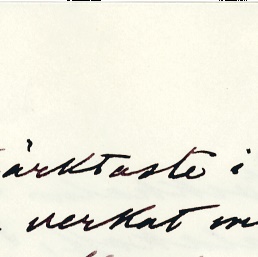 ärktaste i
verkat m